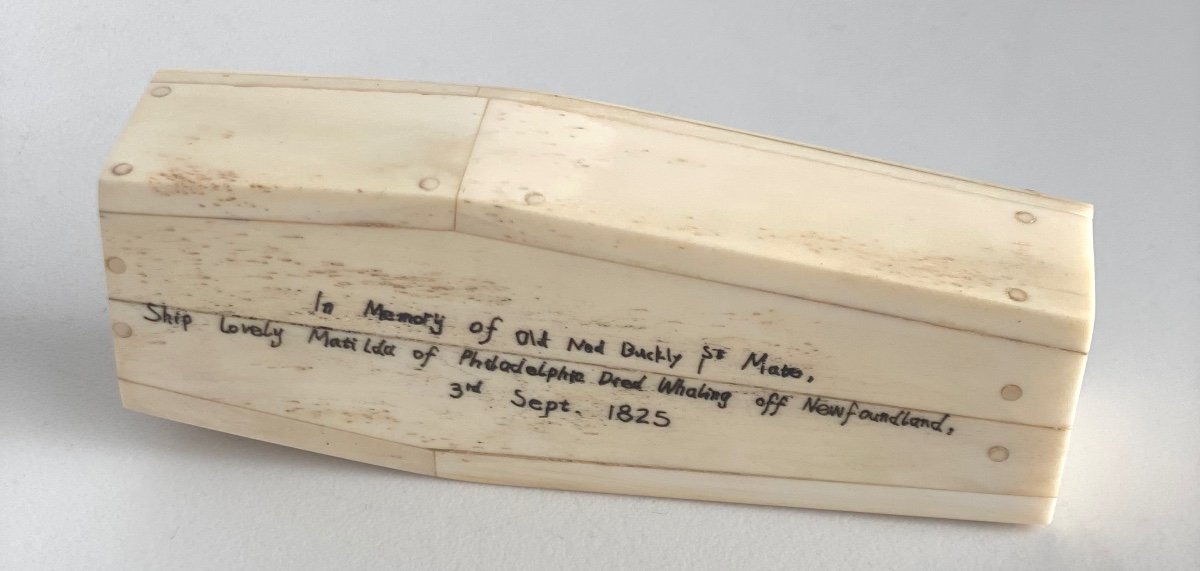 In Memory of Old Ned Buckly 1st Mate,
Ship Lovely Matilda of Philadelphia Died Whaling off Newfoundland,
3rd Sept. 1825